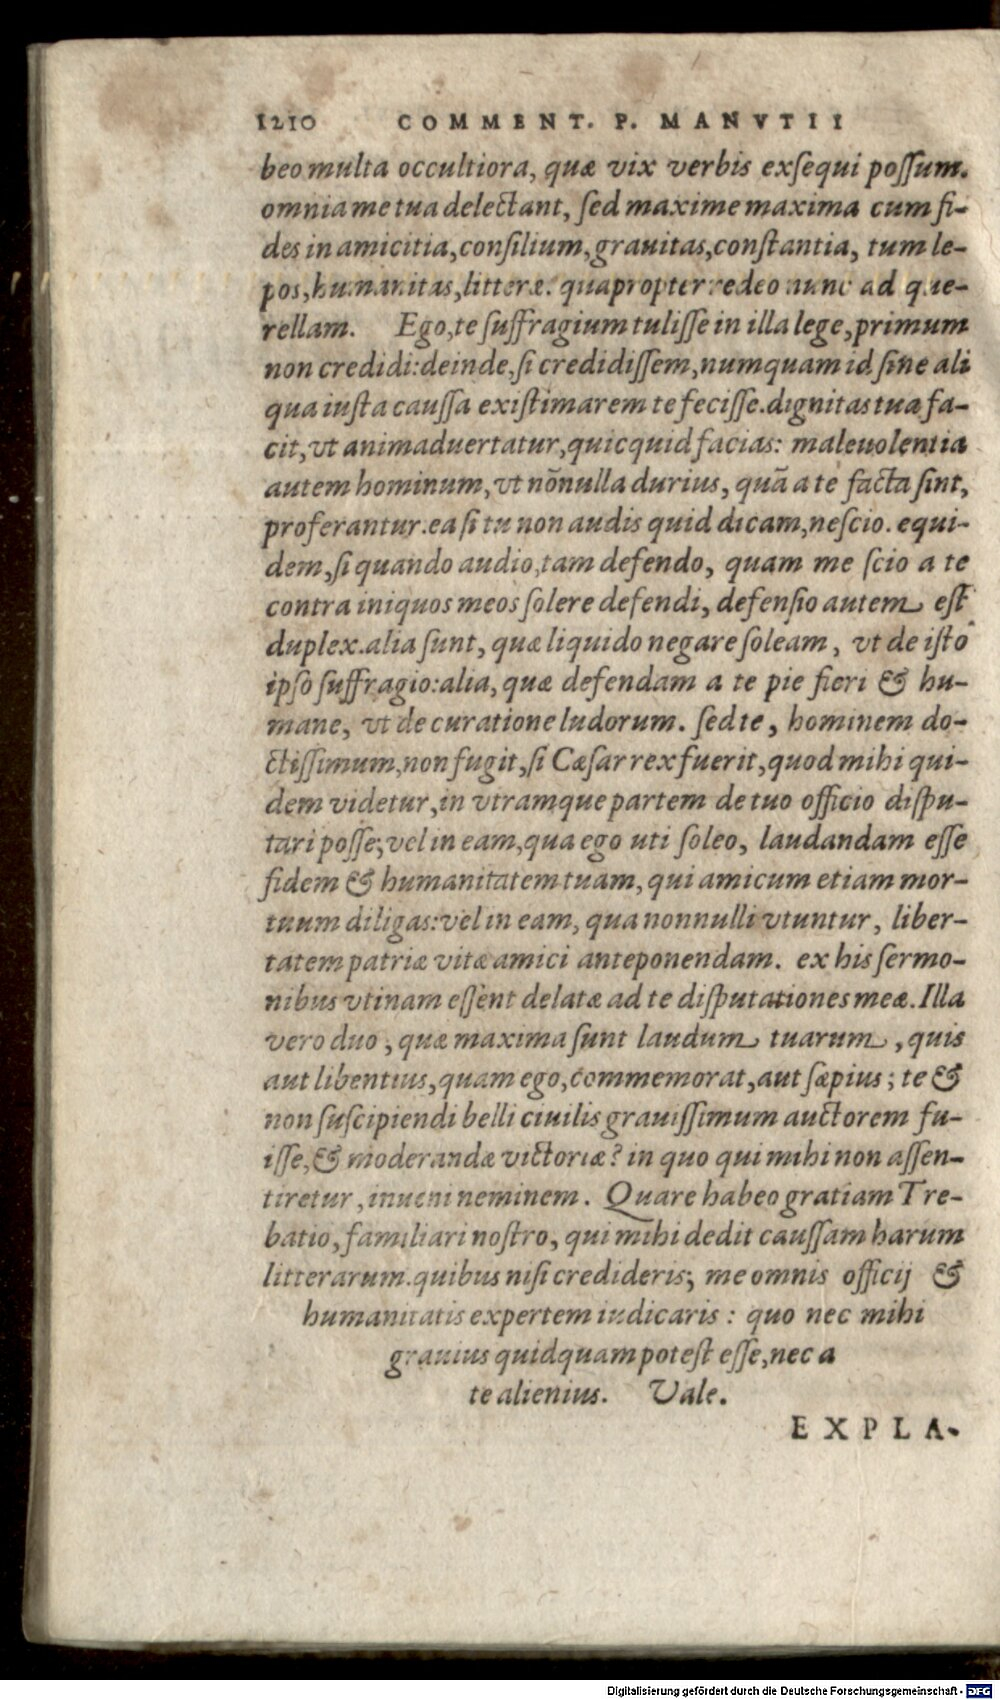 1210 COMMENT. P. MANVTII
beo multa occultiora, quæ vix verbis exſequi poſſum.
omnia me tua delectant, ſed maxime maxima cum fi-
des in amicitia, conſilium, grauitas, conſtantia, tum le-
pos, humanitas, litteræ. quapropter redeo nunc ad que-
rellam. Ego, te ſuffragium tuliſſe in illa lege, primum
non credidi: deinde, ſi credidiſſem, numquam id ſine ali
qua iuſta cauſſa exiſtimarem te feciſſe. dignitas tua fa-
cit, vt animaduertatur, quicquid facias: maleuolentia
autem hominum, vt nõnulla durius, quã a te facta ſint,
proferantur. ea ſi tu non audis quid dicam, neſcio. equi-
dem, ſi quando audio, tam defendo, quam me ſcio a te
contra iniquos meos ſolere defendi, defenſio autem eſt
duplex. alia ſunt, quæ liquido negare ſoleam, vt de iſto
ipſo ſuffragio: alia, quæ defendam a te pie fieri & hu-
mane, vt de curatione ludorum. ſed te, hominem do-
ctiſſimum, non fugit, ſi Cæſar rex fuerit, quod mihi qui-
dem videtur, in vtramque partem de tuo officio diſpu-
tari poſſe; vel in eam, qua ego uti ſoleo, laudandam eſſe
fidem & humanitatem tuam, qui amicum etiam mor-
tuum diligas: vel in eam, qua nonnulli vtuntur, liber-
tatem patriæ vitæ amici anteponendam. ex his ſermo-
nibus vtinam eſſent delatæ ad te diſputationes meæ. Illa
vero duo, quæ maxima ſunt laudum tuarum, quis
aut libentius, quam ego, commemorat, aut ſæpius; te &
non ſuſcipiendi belli ciuilis grauiſſimum auctorem fu-
iſſe, & moderandæ victoriæ? in quo qui mihi non aſſen-
tiretur, inueni neminem. Quare habeo gratiam Tre-
batio, familiari noſtro, qui mihi dedit cauſſam harum
litterarum. quibus niſi credideris; me omnis officij &
humanitatis expertem iudicaris: quo nec mihi
grauius quidquam poteſt eſſe, nec a
te alienius. Vale.
EXPLA-
Digitalisierung gefördert durch die Deutsche Forschungsgemeinschaft - DFG